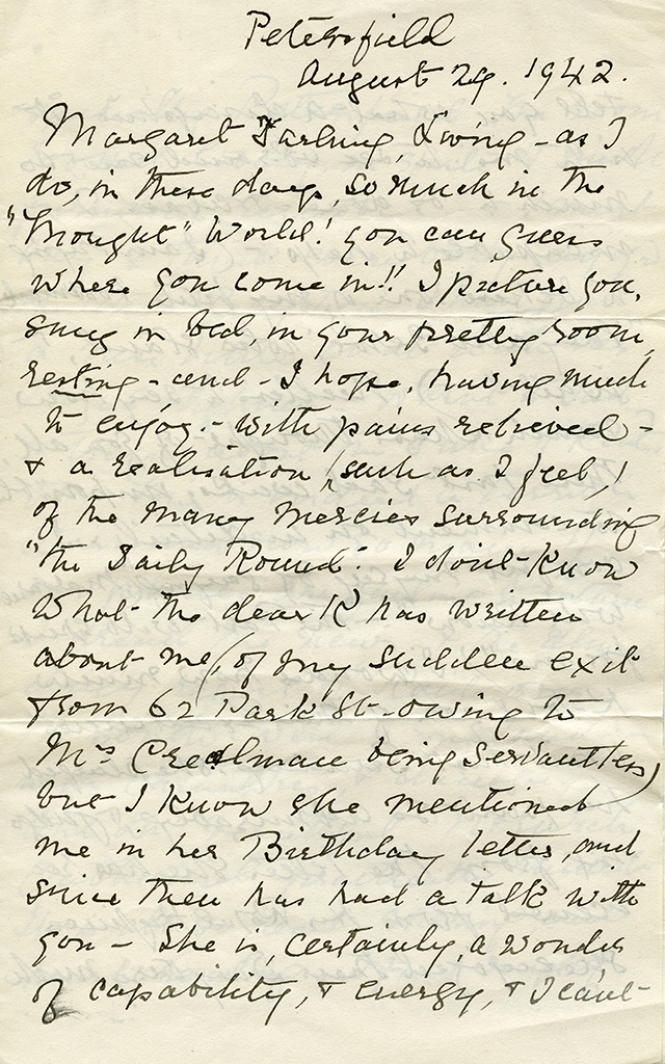 Petersfield
August 29. 1942.
Margaret Darling, Living - as I
do, in these days, so much in the
"Thought" World! you can guess
where you come in!! I picture you,
snug in bed, in your pretty room,
resting - and - I hope, having much
to enjoy - with pains relieved -
& a realisation (such as I feel,)
of the many mercies surrounding
"the Daily Round". I don't know
what the dear K has written
about me, (of my sudden exit
from 62 Park St - owing to
Mrs being servantless)
but I know she mentioned
me in her Birthday letter, and
since then has had a talk with
you - She is, certainly, a wonder
of capability, & energy, & I can't